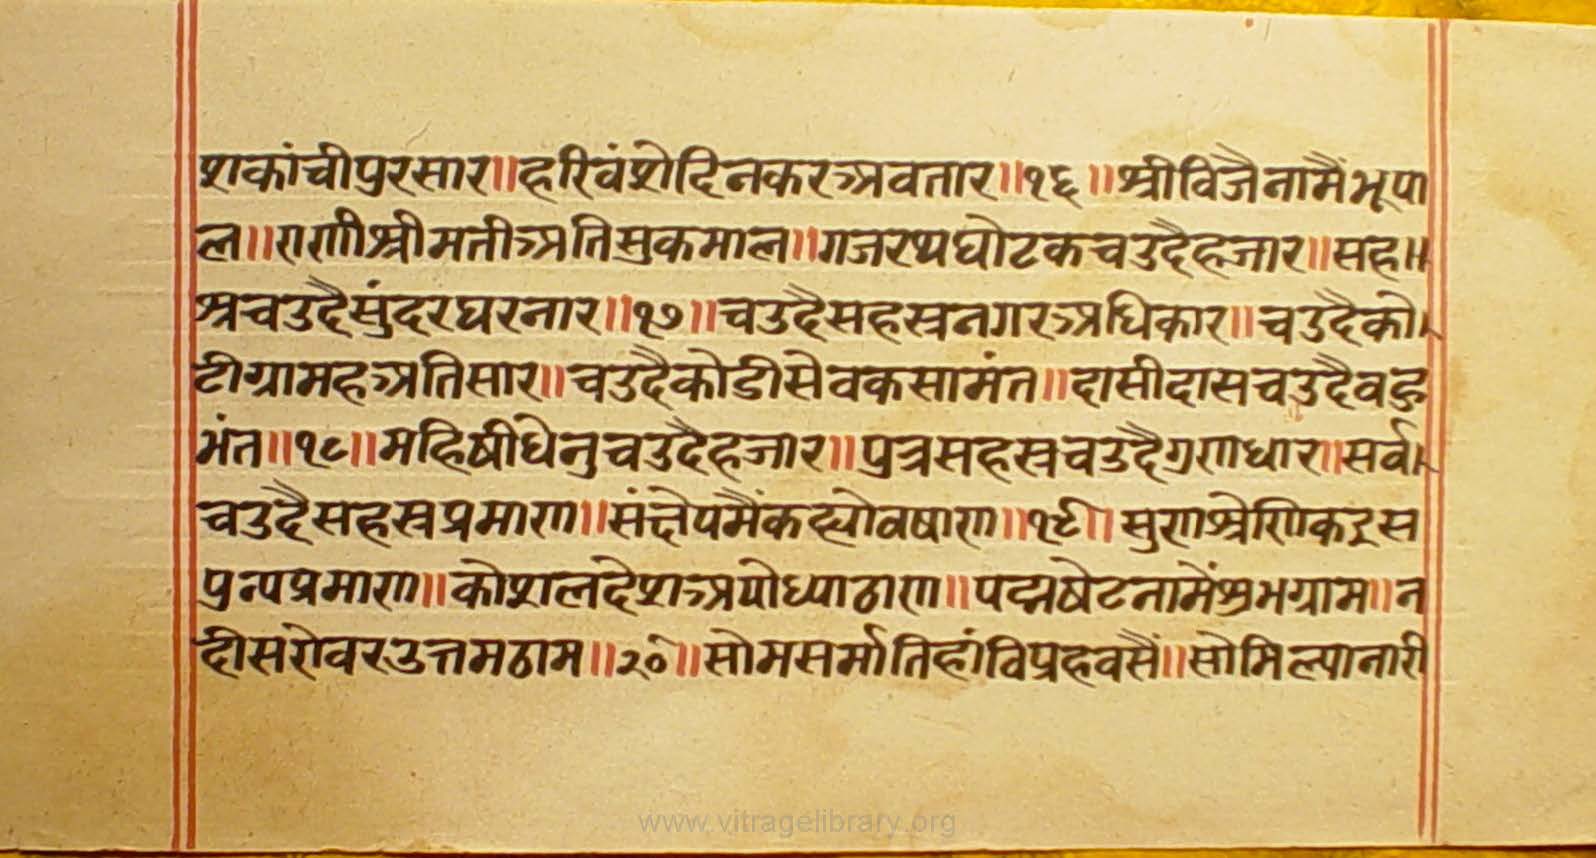 शकांचीपुरसार॥हरिवंशेदिनकरअवतार॥१६॥श्रीविजैनामैंभूपा
ल॥राणीश्रीमतीअतिसुकमाल॥गजरथघोटकचउदैहजार॥सह॥
श्रचउदैसुंदरघरनार॥१७॥चउदैसहस्रनगरअधिकार॥चउदैको।
टीग्रामहअतिसार॥चउदैकोडीसेवकसामंत॥दासीदासचउदैवहु
भंत॥१८॥महिषीधेनुचउदैहजार॥पुत्रसहस्रचउदैगुणधार॥सर्व।
चउदैसहस्रप्रमाण॥संक्षेपमैंकह्योवषाण॥१९॥सुणश्रेणिकइस
पुन्यप्रमाण॥कोशलदेशअयोध्याठाण॥पद्मषेटनामेंशुभग्राम॥न
दीसरोवरउत्तमठाम॥२०॥सोमसर्मातिहांविप्रहवसैं॥सोमिल्यानारी
www.vitragelibrary.org